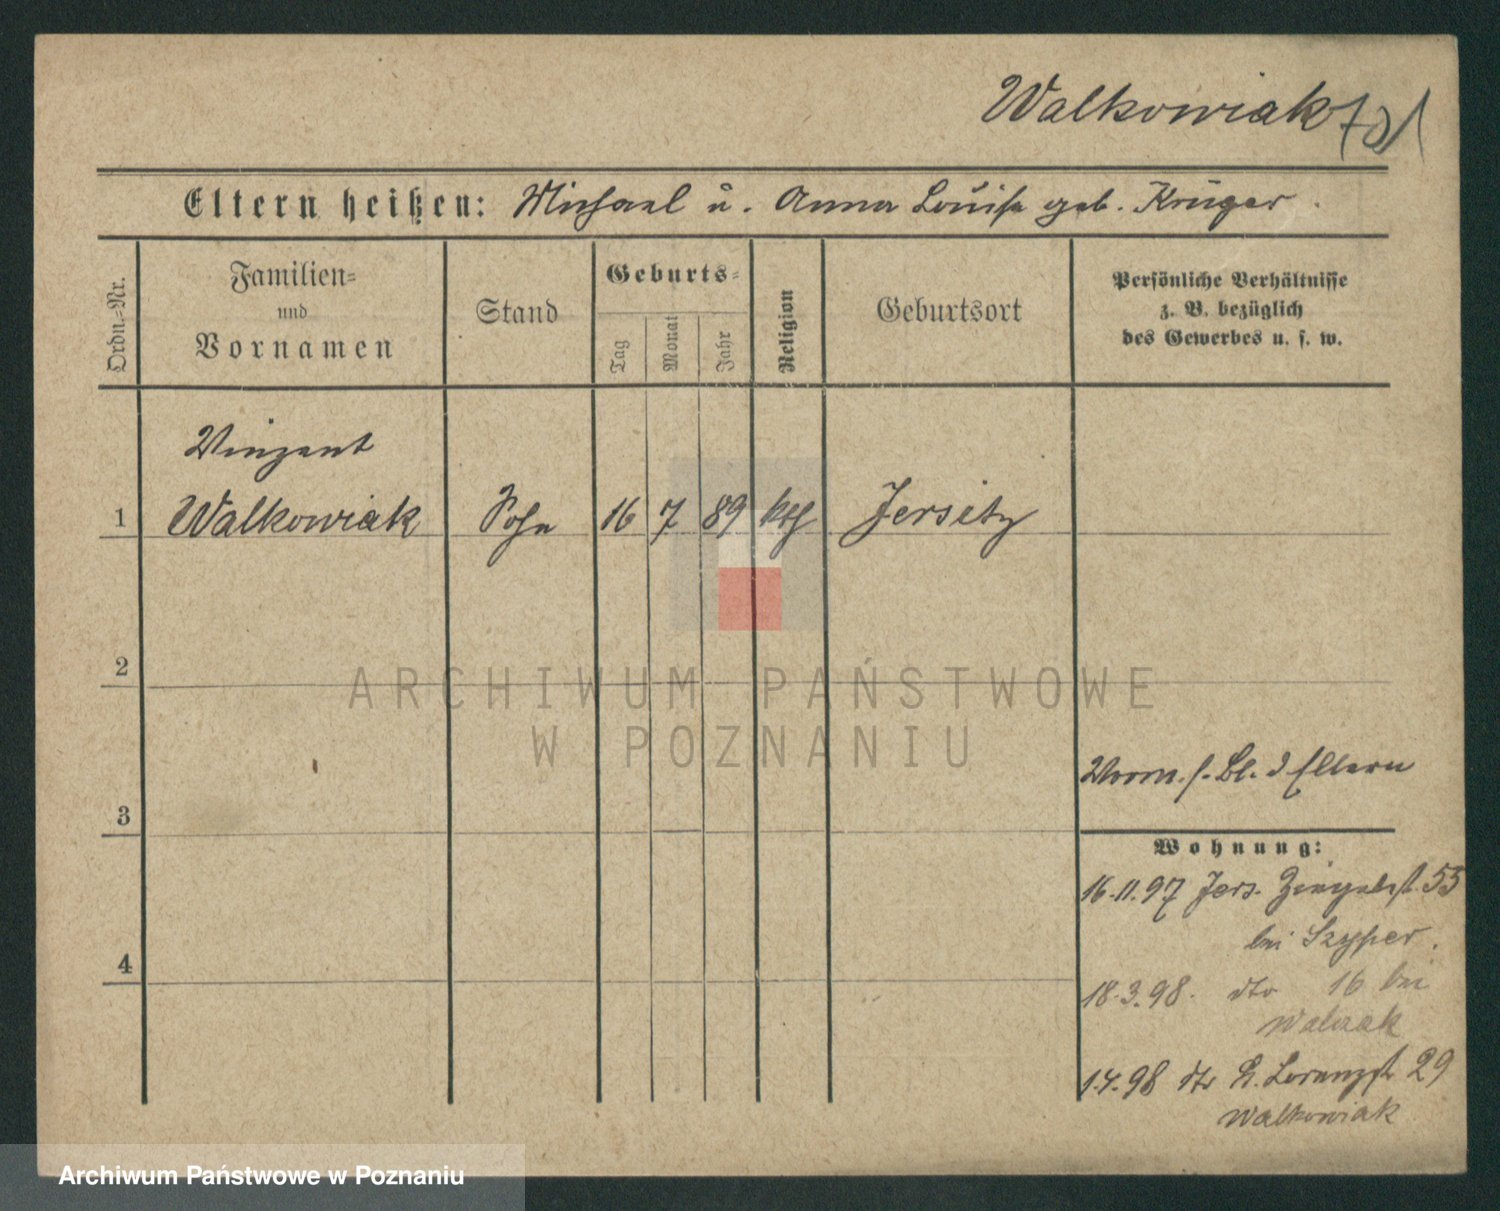 Walkowiak 701
Eltern heißen: Michael u. Anna Louise geb. Krüger.
Ordn.-Nr.
Familien-
und
Vornamen
Stand
Geburts-
Tag
Monat
Jahr
Religion
Geburtsort
Persönliche Verhältnisse
z. B. bezüglich
des Gewerbes u. s. w.
Vinzent
1 Walkowiak Sohn 16 7 89 kth Jersitz
2
ARCHIWUM PAŃSTWOWE
W POZNANIU
3
Vorm. s. Bl. d Eltern
Wohnung:
16.11.97 Jers. 55
bei Szyper.
4
18.3.98. dto 16 bei
Walczak
1.4.98 dto Lorenzstr 29
Walkowiak
Archiwum Państwowe w Poznaniu